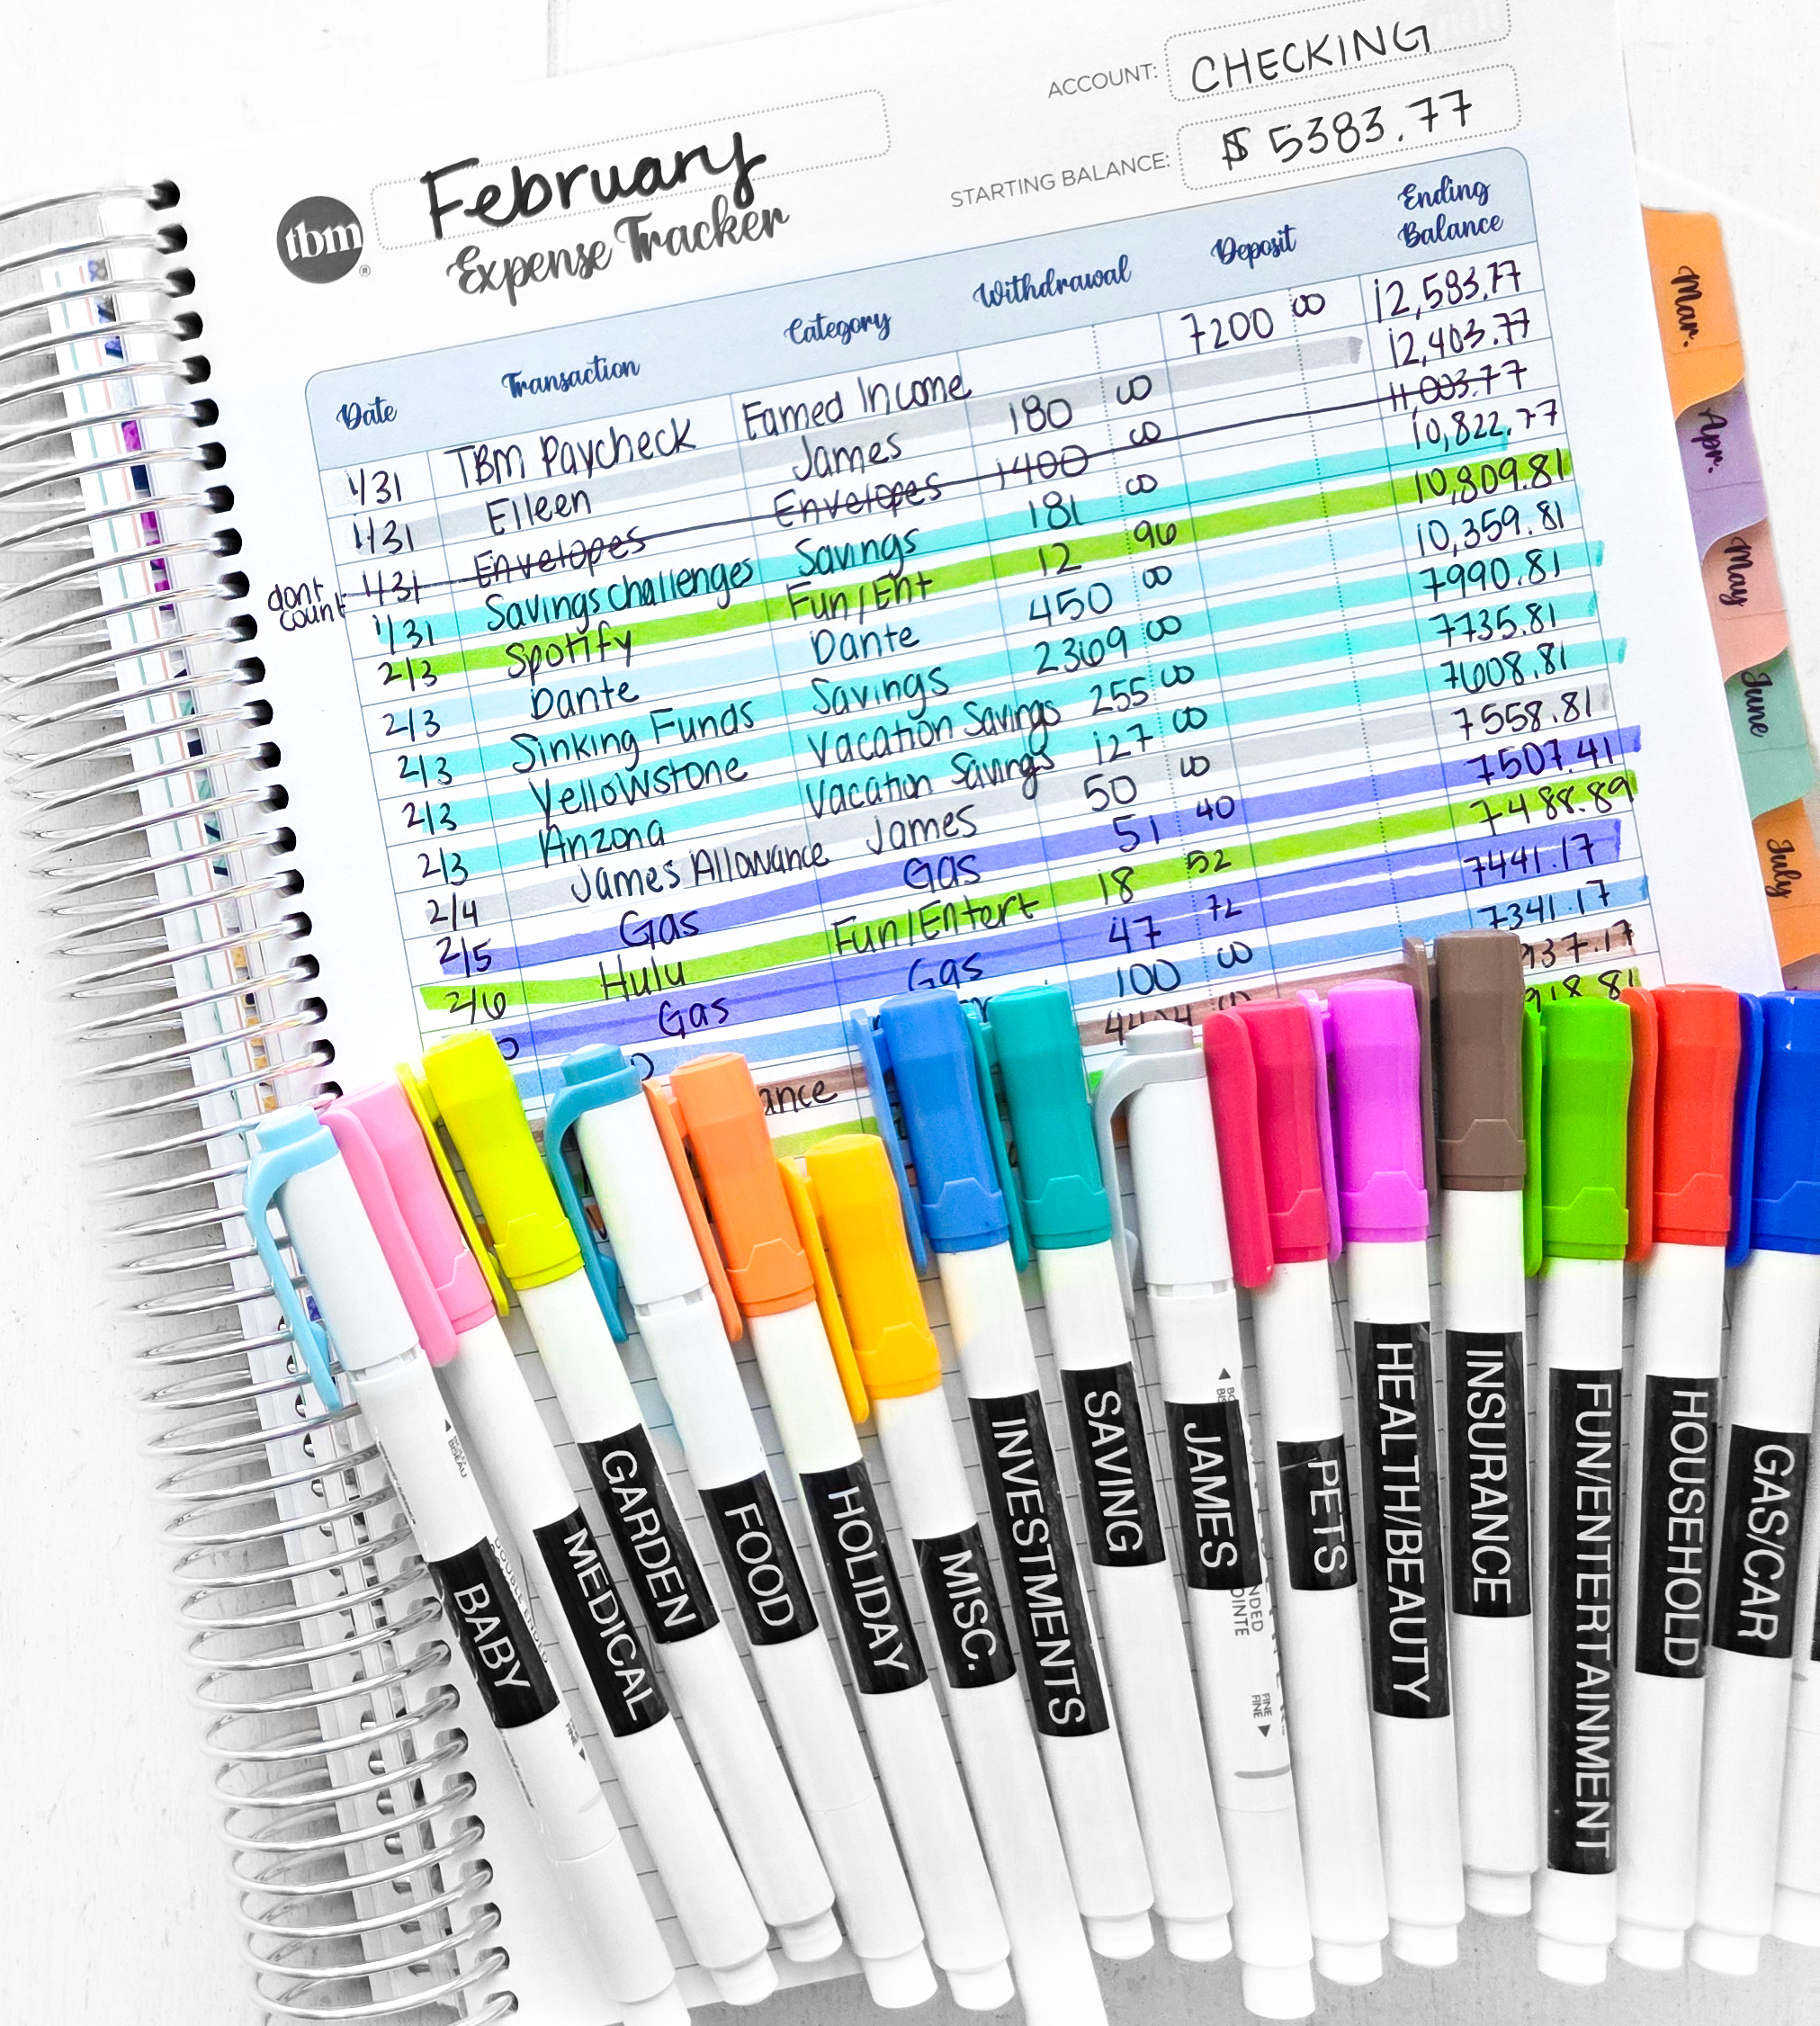 ACCOUNT: CHECKING
STARTING BALANCE: $ 5383.77
tbm
February
Expense Tracker
Date Transaction Category Withdrawal Deposit Ending Balance
1/31 TBM Paycheck Earned Income 7200 00 12,583.77
1/31 Eileen James 180 00 12,403.77
dont count 1/31 Envelopes Envelopes 1400 00 11,003.77
1/31 Savings challenges Savings 181 00 10,822.77
2/3 Spotify Fun/Ent 12 96 10,809.81
2/3 Dante Dante 450 00 10,359.81
2/3 Sinking Funds Savings 2369 00 7990.81
2/3 Yellowstone Vacation Savings 255 00 7735.81
2/3 Arizona Vacation Savings 127 00 7608.81
2/4 James Allowance James 50 00 7558.81
2/5 Gas Gas 51 40 7507.41
2/6 Hulu Fun/Entert 18 52 7488.89
Gas Gas 47 72 7441.17
100 00 7341.17
ance 937.17
918.81
Mar.
Apr.
May
June
July
BABY
MEDICAL
GARDEN
FOOD
HOLIDAY
MISC.
INVESTMENTS
SAVING
JAMES
PETS
HEALTH/BEAUTY
INSURANCE
FUN/ENTERTAINMENT
HOUSEHOLD
GAS/CAR